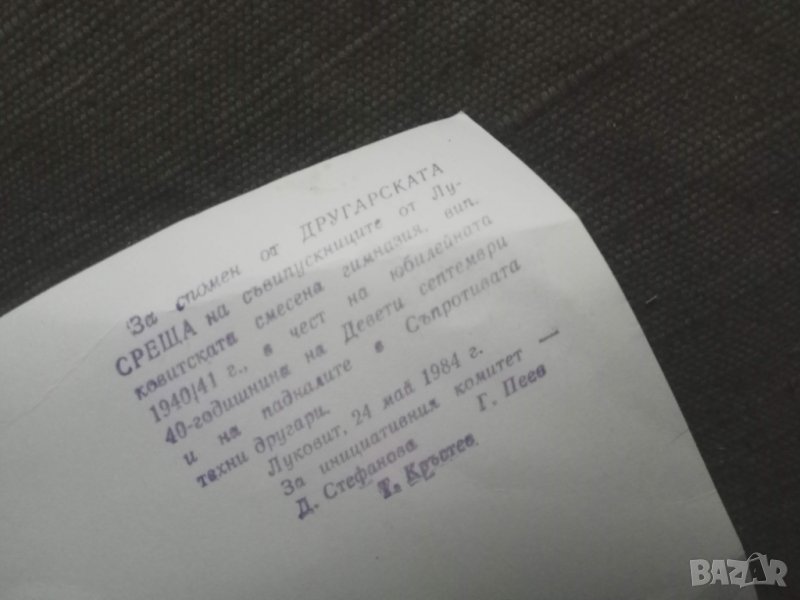 За спомен от ДРУГАРСКАТА
СРЕЩА на съвипускниците от Лу-
ковитската смесена гимназия, вип.
1940/41 г., в чест на юбилейната
40-годишнина на Девети септември
и на падналите в Съпротивата
техни другари.
Луковит, 24 май 1984 г.
За инициативния комитет —
Д. Стефанова Г. Пеев
Т. Кръстев
BAZAR